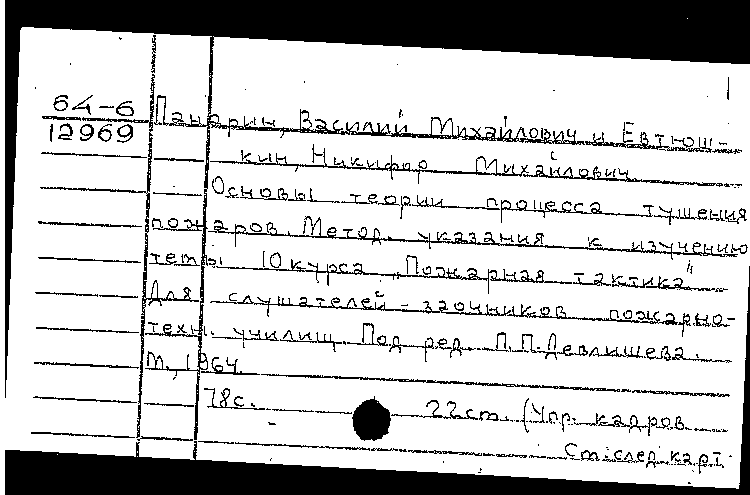 64-6
12969
Панарин, Василий Михайлович и Евтюш-
кин, Никифор Михайлович.
Основы теории процесса тушения
пожаров. Метод. указания к изучению
темы 10 курса „Пожарная тактика"
Для слушателей-заочников пожарно-
техн. училищ. Под ред. П.П. Девлишева.
М., 1964.
78с. 22см. (Упр. кадров
См. след. карт.